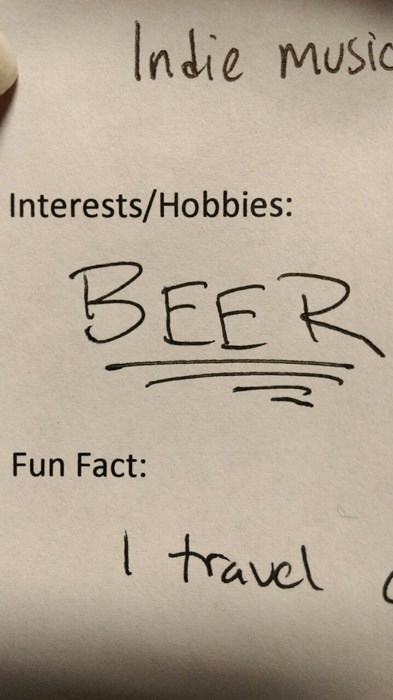 Indie music
Interests/Hobbies:
BEER
Fun Fact:
I travel